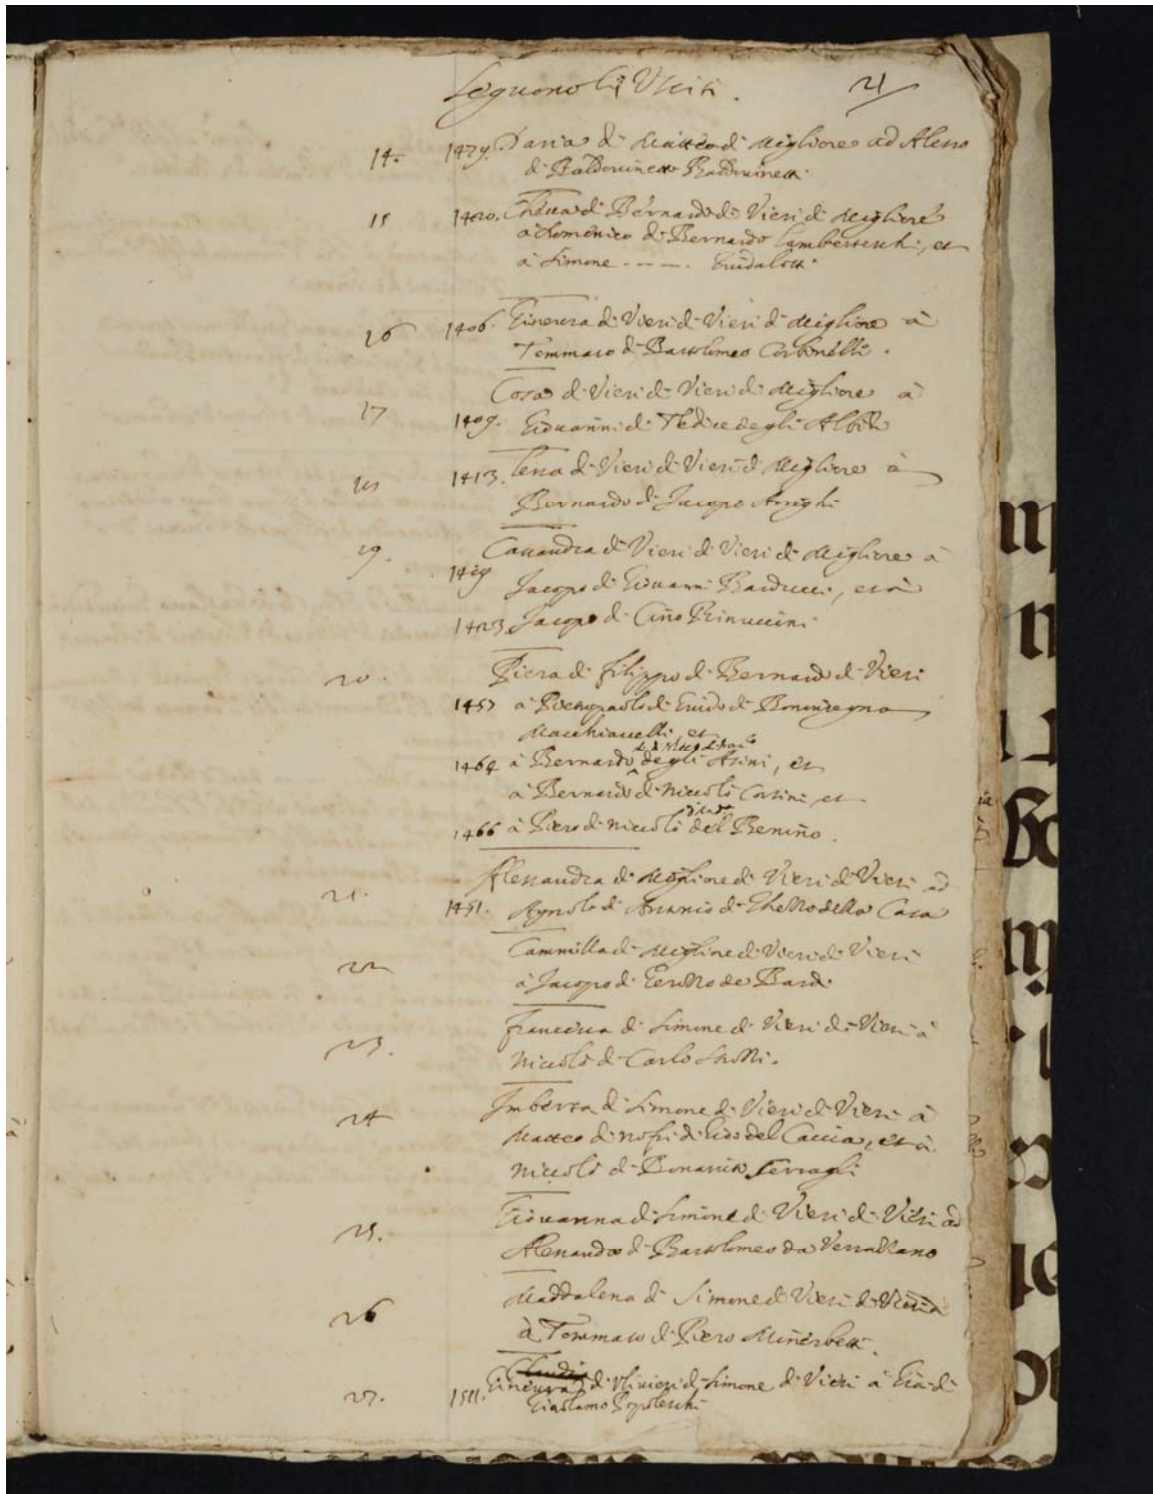 Seguono li Usciti. 21
14. 1479. Daria di Matteo di Migliore ad Alesso
di Baldovinetto Baldovinetti
15 1400. di Bernardo di Vieri di Migliore
à Domenico di Bernardo Lamberteschi, et
à Simone - - - - . Guidalotti
16 1406. Ginevra di Vieri di Vieri di Migliore à
Tommaso di Bartolomeo Corbinelli.
Cosa di Vieri di Vieri di Migliore à
17 1409. Giovanni di Tedice degli Albizi
18 1413. Tessa di Vieri di Vieri di Migliore à
Bernardo di Jacopo Arrighi
19. Cassandra di Vieri di Vieri di Migliore à
1419 Jacopo di Giovanni Barducci, et à
1423 Jacopo di Cino Rinuccini
20. Piera di Filippo di Bernardo di Vieri
1457 à Pieropaolo di Guido di Boninsegna
Macchiavelli, et
1464 à Bernardo degli Asini, et
à Bernardo di Niccolò Corsini, et
1466 à Piero di Niccolò del Benino.
Alessandra di Migliore di Vieri di Vieri ad
21. 1451. Agnolo di Antonio di Ghezzo della Casa
Cammilla di Migliore di Vieri di Vieri
22 à Jacopo di Gerozzo de Bardi
Francesca di Simone di Vieri di Vieri à
23. Niccolò di Carlo Strozzi.
24 Imberta di Simone di Vieri di Vieri à
Matteo di Nofri di Gio del Caccia, et à
Niccolò di Bonaiuto Serragli
Giovanna di Simone di Vieri di Vieri ad
25. Alessandro di Bartolomeo da Verrazzano
Maddalena di Simone di Vieri di Vieri
26 à Tommaso di Piero Minerbetti.
Claudia
27. 1511. Ginevra di Ulivieri di Simone di Vieri à Gio: di
Girolamo Popoleschi